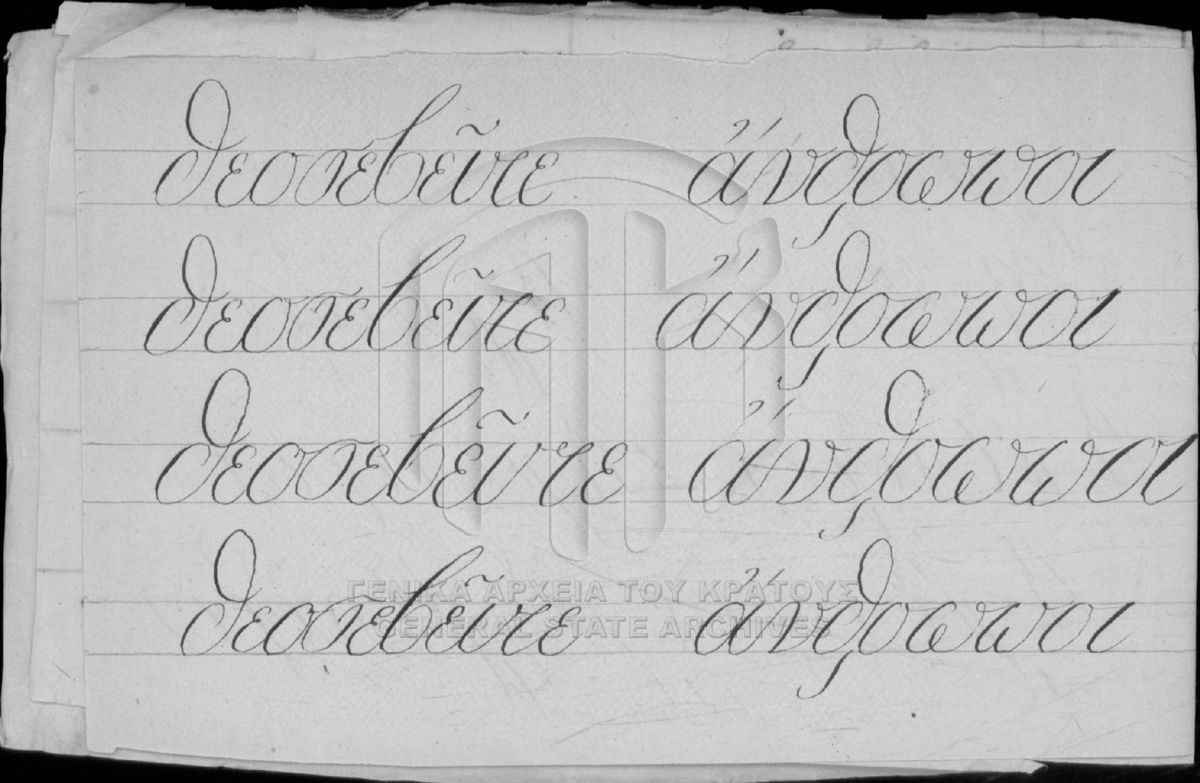 θεοσεβεῖτε ἄνθρωποι
θεοσεβεῖτε ἄνθρωποι
θεοσεβεῖτε ἄνθρωποι
ΓΕΝΙΚΑ ΑΡΧΕΙΑ ΤΟΥ ΚΡΑΤΟΥΣ
θεοσεβεῖτε ἄνθρωποι
GENERAL STATE ARCHIVES